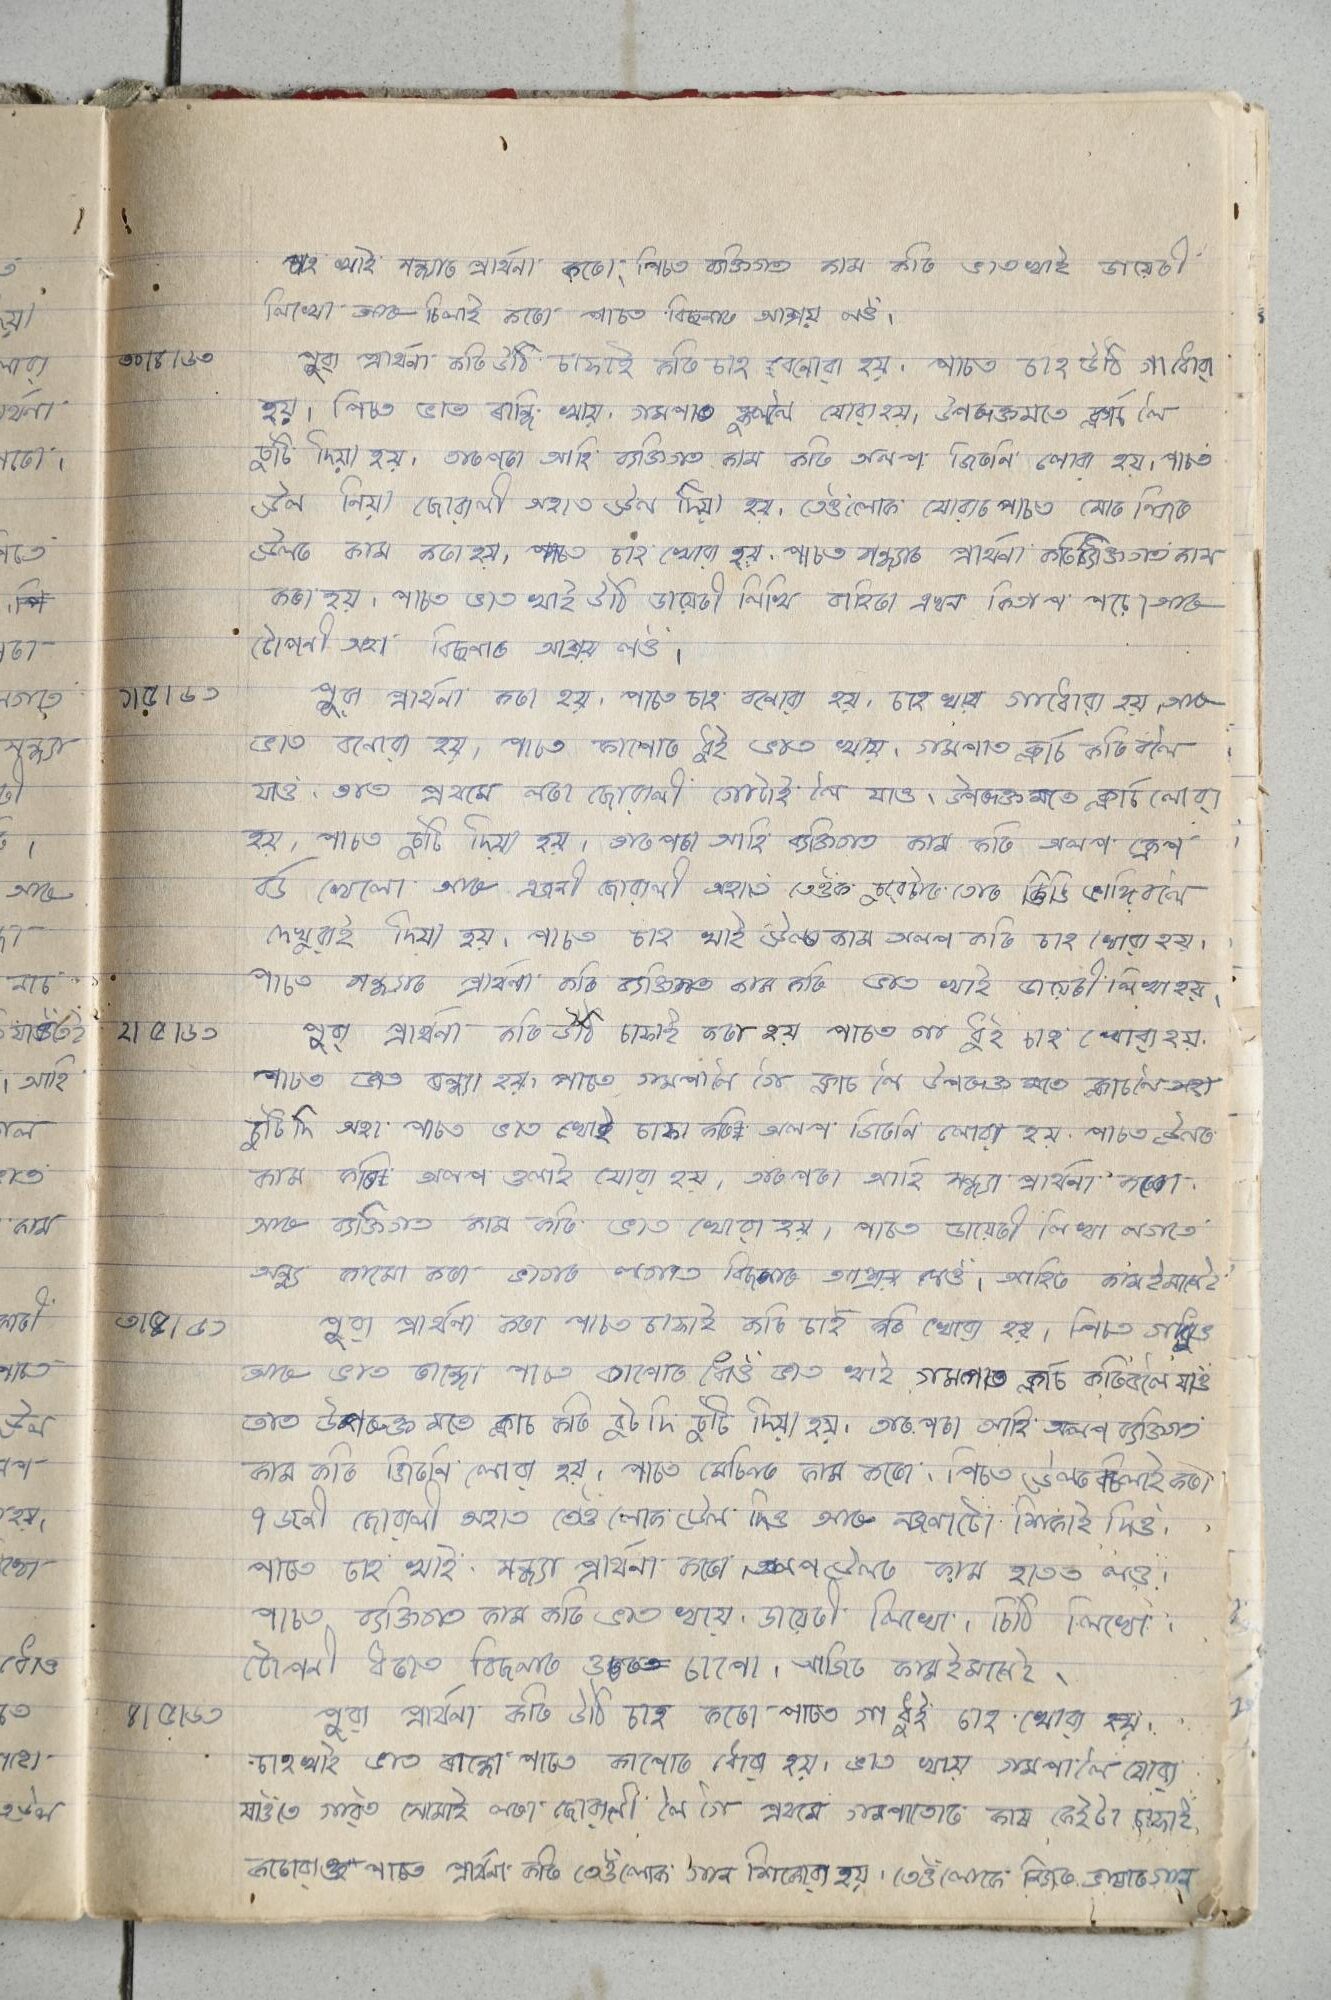 চাহ খাই সন্ধ্যাত প্ৰাৰ্থনা কৰো, পিচত ব্যক্তিগত কাম কৰি ভাত খাই ডায়েৰী
লিখো আৰু চিলাই কৰো পাচত বিছনাত আশ্ৰয় লওঁ।
৩০।৪।৬৩ পুৱা প্ৰাৰ্থনা কৰি উঠি চাফাই কৰি চাহ বনোৱা হয়. পাচত চাহ উঠি গা ধোৱা
হয়। পিচত ভাত ৰান্ধি খায়. গমপাত স্কুললৈ যোৱা হয়, উপৰুক্তমতে ক্লাচ লৈ
ছুটি দিয়া হয়. তাৰপৰা আহি ব্যক্তিগত কাম কৰি অলপ জিৰণি লোৱা হয়, পাচত
উল নিয়া জোৱালী অহাত উল দিয়া হয়. তেওঁলোক যোৱাৰ পাচত মোৰ নিজৰ
উলৰ কাম কৰা হয়, পাচত চাহ খোৱা হয়. পাচত সন্ধ্যাত প্ৰাৰ্থনা কৰি ব্যক্তিগত কাম
কৰা হয়. পাচত ভাত খাই উঠি ডায়েৰী লিখি বাহিৰা এখন কিতাপ পঢ়ো আৰু
টোপনী অহা বিছনাত আশ্ৰয় লওঁ।
১।৫।৬৩ পুৱা প্ৰাৰ্থনা কৰা হয়. পাচত চাহ বনোৱা হয়. চাহ খায় গা ধোৱা হয়, আৰু
ভাত বনোৱা হয়, পাচত কাপোৰ ধুই ভাত খায়. গমপাত ক্লাচ কৰিবলৈ
যাওঁ. তাত প্ৰথমে লৰা জোৱালী গোটাই লৈ যাওঁ. উপৰুক্ত মতে ক্লাচ লোৱা
হয়, পাচত ছুটি দিয়া হয়, তাৰপৰা আহি ব্যক্তিগত কাম কৰি অলপ কেৰম
বৰ্ড খেলো আৰু এজনী জোৱালী অহাত তেওঁক
দেখুৱাই দিয়া হয়. পাচত চাহ খাই উলৰ কাম অলপ কৰি চাহ খোৱা হয়.
পাচত সন্ধ্যাত প্ৰাৰ্থনা কৰি ব্যক্তিগত কাম কৰি ভাত খাই ডায়েৰী লিখা হয়,
২।৫।৬৩ পুৱা প্ৰাৰ্থনা কৰি উঠি চাফাই কৰা হয় পাচত গা ধুই চাহ খোৱা হয়.
পাচত ভাত ৰন্ধা হয়. পাচত গমপালৈ গৈ ক্লাচ লৈ উপৰুক্ত মতে ক্লাচ লৈ অহা
ছুটি দি অহা পাচত ভাত খোই চাফা কৰি অলপ জিৰণি লোৱা হয়. পাচত উলৰ
কাম কৰি অলপ ওলাই যোৱা হয়, তাৰপৰা আহি সন্ধ্যা প্ৰাৰ্থনা কৰো.
আৰু ব্যক্তিগত কাম কৰি ভাত খোৱা হয়, পাচত ডায়েৰী লিখা লগতে
অন্য কামো কৰা ভাগৰ লগাত বিছনাত আশ্ৰয় লওঁ, আজিৰ কাম ইমানেই
৩।৫।৬৩ পুৱা প্ৰাৰ্থনা কৰা পাচত চাফাই কৰি চাহ কৰি খোৱা হয়, পিচত গা ধুওঁ
আৰু ভাত ৰান্ধো পাচত কাপোৰ ধোওঁ ভাত খাই গমপাত ক্লাচ কৰিবলৈ যাওঁ
তাত উপৰুক্ত মতে ক্লাচ কৰি বুট দি ছুটি দিয়া হয়. তাৰ পৰা আহি অলপ ব্যক্তিগত
কাম কৰি জিৰণি লোৱা হয়, পাচত মেচিনত কাম কৰো. পিচত উলৰ চিলাই কৰা
৭ জনী জোৱালী অহাত তেওঁ লোক উল দিওঁ আৰু নজনাটো শিকাই দিওঁ.
পাচত চাহ খাই. সন্ধ্যা প্ৰাৰ্থনা কৰো, অলপ উলৰ কাম হাতত লওঁ.
পাচত ব্যক্তিগত কাম কৰি ভাত খায়. ডায়েৰী লিখো, চিঠি লিখো.
টোপনী ধৰাত বিছনাত চাপো. আজিৰ কাম ইমানেই.
৪।৫।৬৩ পুৱা প্ৰাৰ্থনা কৰি উঠি চাহ কৰো পাচত গা ধুই চাহ খোৱা হয়.
চাহ খাই ভাত ৰান্ধো পাচত কাপোৰ ধোৱা হয়. ভাত খায় গমপালৈ যোৱা
যাওঁতে গাৱঁত সোমাই লৰা জোৱালী লৈ গৈ প্ৰথমে গমপাতোৰ কাষ কেইটা চাফাই
কৰোৱা হয় পাচত প্ৰাৰ্থনা কৰি তেওঁলোক গান শিকোৱা হয়. তেওঁলোকে নিজৰ ভাষাৰ গান